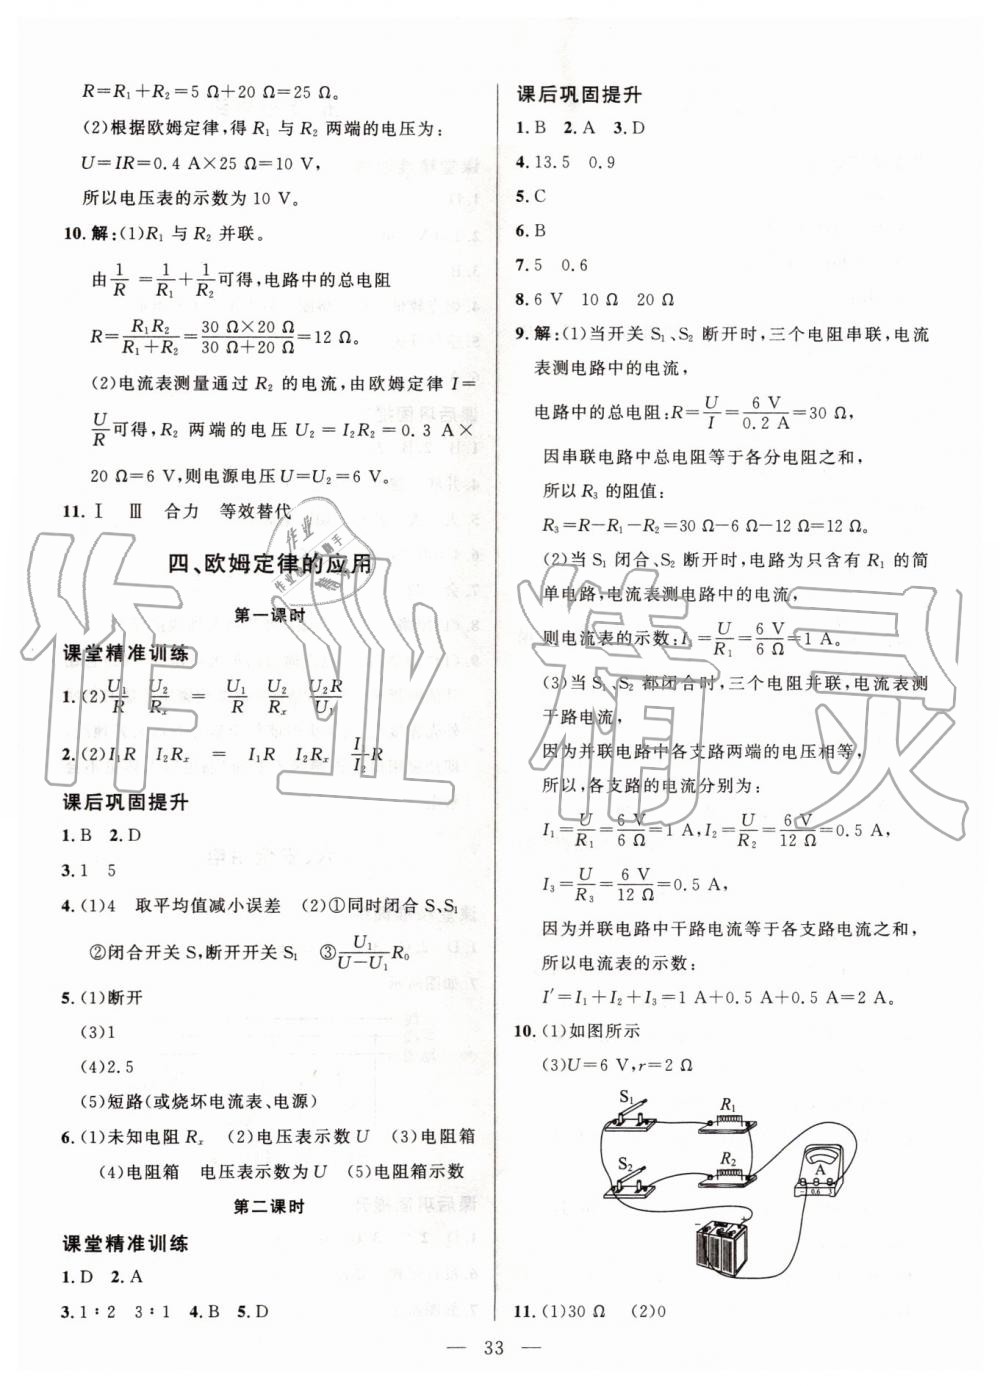 R=R₁+R₂=5 Ω+20 Ω=25 Ω。
(2)根据欧姆定律,得 R₁ 与 R₂ 两端的电压为:
U=IR=0.4 A×25 Ω=10 V,
所以电压表的示数为 10 V。
10.解:(1)R₁ 与 R₂ 并联。
由1/R=1/R₁+1/R₂可得,电路中的总电阻
R=R₁R₂/(R₁+R₂)=(30 Ω×20 Ω)/(30 Ω+20 Ω)=12 Ω。
(2)电流表测量通过 R₂ 的电流,由欧姆定律 I=
U/R可得,R₂ 两端的电压 U₂=I₂R₂=0.3 A×
20 Ω=6 V,则电源电压 U=U₂=6 V。
11.Ⅰ Ⅲ 合力 等效替代
四、欧姆定律的应用
第一课时
课堂精准训练
1.(2)U₁/R U₂/Rₓ = U₁/R U₂/Rₓ U₂R/U₁
2.(2)I₁R I₂Rₓ = I₁R I₂Rₓ I₁/I₂R
课后巩固提升
1.B 2.D
3.1 5
4.(1)4 取平均值减小误差 (2)①同时闭合 S、S₁
②闭合开关 S,断开开关 S₁ ③U₁/(U-U₁)R₀
5.(1)断开
(3)1
(4)2.5
(5)短路(或烧坏电流表、电源)
6.(1)未知电阻 Rₓ (2)电压表示数 U (3)电阻箱
(4)电阻箱 电压表示数为 U (5)电阻箱示数
第二课时
课堂精准训练
1.D 2.A
3.1∶2 3∶1 4.B 5.D
课后巩固提升
1.B 2.A 3.D
4.13.5 0.9
5.C
6.B
7.5 0.6
8.6 V 10 Ω 20 Ω
9.解:(1)当开关 S₁、S₂ 断开时,三个电阻串联,电流
表测电路中的电流,
电路中的总电阻:R=U/I=6 V/0.2 A=30 Ω,
因串联电路中总电阻等于各分电阻之和,
所以 R₃ 的阻值:
R₃=R-R₁-R₂=30 Ω-6 Ω-12 Ω=12 Ω。
(2)当 S₁ 闭合、S₂ 断开时,电路为只含有 R₁ 的简
单电路,电流表测电路中的电流,
则电流表的示数:I₁=U/R₁=6 V/6 Ω=1 A。
(3)S₁、S₂ 都闭合时,三个电阻并联,电流表测
干路电流,
因为并联电路中各支路两端的电压相等,
所以,各支路的电流分别为:
I₁=U/R₁=6 V/6 Ω=1 A,I₂=U/R₂=6 V/12 Ω=0.5 A,
I₃=U/R₃=6 V/12 Ω=0.5 A,
因为并联电路中干路电流等于各支路电流之和,
所以电流表的示数:
I′=I₁+I₂+I₃=1 A+0.5 A+0.5 A=2 A。
10.(1)如图所示
(3)U=6 V,r=2 Ω
S₁ R₁
S₂ R₂ A
- 0.6 3
11.(1)30 Ω (2)0
— 33 —
作业精灵